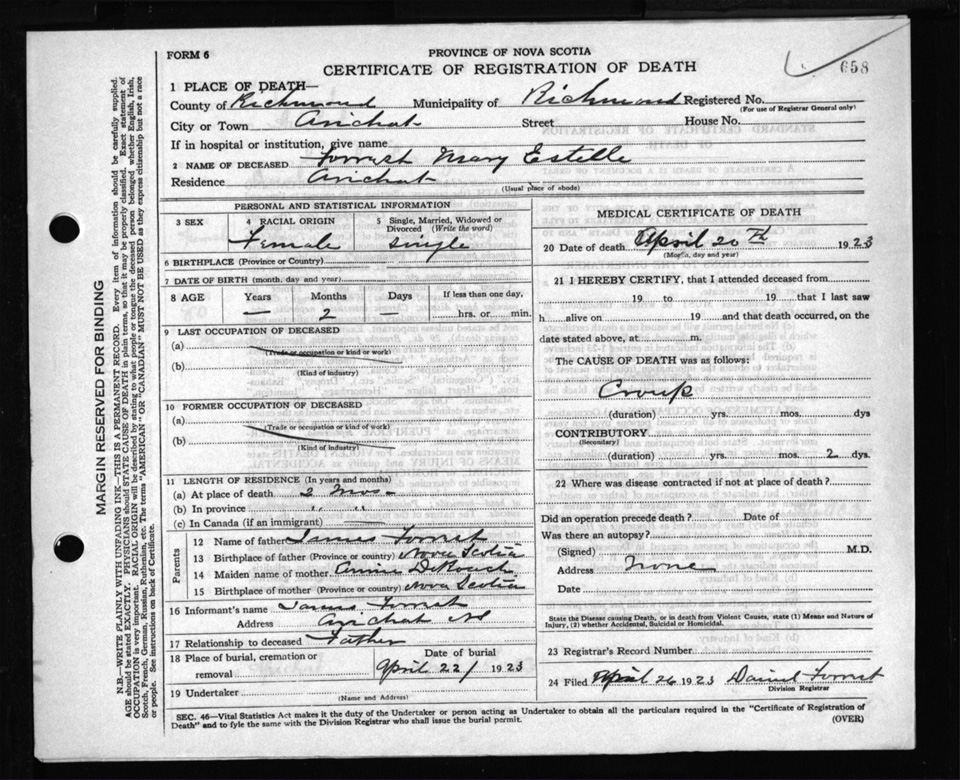 FORM 6
PROVINCE OF NOVA SCOTIA
CERTIFICATE OF REGISTRATION OF DEATH
658
1 PLACE OF DEATH—
County of Richmond Municipality of Richmond Registered No.
(For use of Registrar General only)
City or Town Arichat Street House No.
If in hospital or institution, give name
2 NAME OF DECEASED Forrest Mary Estelle
Residence Arichat
(Usual place of abode)
PERSONAL AND STATISTICAL INFORMATION
3 SEX 4 RACIAL ORIGIN 5 Single, Married, Widowed or Divorced (Write the word)
Female Single
6 BIRTHPLACE (Province or Country)
7 DATE OF BIRTH (month, day and year)
8 AGE Years Months Days If less than one day,
— 2 — hrs. or min.
9 LAST OCCUPATION OF DECEASED
(a)
(Trade or occupation or kind or work)
(b)
(Kind of industry)
10 FORMER OCCUPATION OF DECEASED
(a)
(Trade or occupation or kind of work)
(b)
(Kind of industry)
11 LENGTH OF RESIDENCE (In years and months)
(a) At place of death 2 mos
(b) In province " "
(c) In Canada (if an immigrant)
Parents
12 Name of father James Forrest
13 Birthplace of father (Province or country) Nova Scotia
14 Maiden name of mother Annie DeRoach
15 Birthplace of mother (Province or country) Nova Scotia
16 Informant's name James Forrest
Address Arichat NS
17 Relationship to deceased Father
18 Place of burial, cremation or removal Date of burial
April 22/ 1923
19 Undertaker
(Name and Address)
MEDICAL CERTIFICATE OF DEATH
20 Date of death April 20th 1923
(Month, day and year)
21 I HEREBY CERTIFY, that I attended deceased from
19 to 19 that I last saw
h alive on 19 and that death occurred, on
date stated above, at m.
The CAUSE OF DEATH was as follows:
Croup
(duration) yrs. mos. dys
CONTRIBUTORY
(Secondary)
(duration) yrs. mos. 2 dys.
22 Where was disease contracted if not at place of death?
Did an operation precede death? Date of
Was there an autopsy?
(Signed) M.D.
Address None
Date
State the Disease causing Death, or in death from Violent Causes, state (1) Means and Nature of
Injury, (2) whether Accidental, Suicidal or Homicidal.
23 Registrar's Record Number
24 Filed April 26 1923 Daniel Forrest
Division Registrar
SEC. 46—Vital Statistics Act makes it the duty of the Undertaker or person acting as Undertaker to obtain all the particulars required in the "Certificate of Registration of
Death" and to fyle the same with the Division Registrar who shall issue the burial permit.
(OVER)
MARGIN RESERVED FOR BINDING
N.B.—WRITE PLAINLY WITH UNFADING INK—THIS IS A PERMANENT RECORD. Every item of information should be carefully supplied.
AGE should be stated EXACTLY. PHYSICIANS should STATE CAUSE OF DEATH in plain terms, so that it may be properly classified. Exact statement of
OCCUPATION is very important. RACIAL ORIGIN will be described by stating to what people or tongue the deceased person belonged whether English, Irish,
Scotch, French, German, Russian, Ruthenian, etc. The terms "AMERICAN" OR "CANADIAN" MUST NOT BE USED as they express citizenship but not a race
or people. See instructions on back of Certificate.